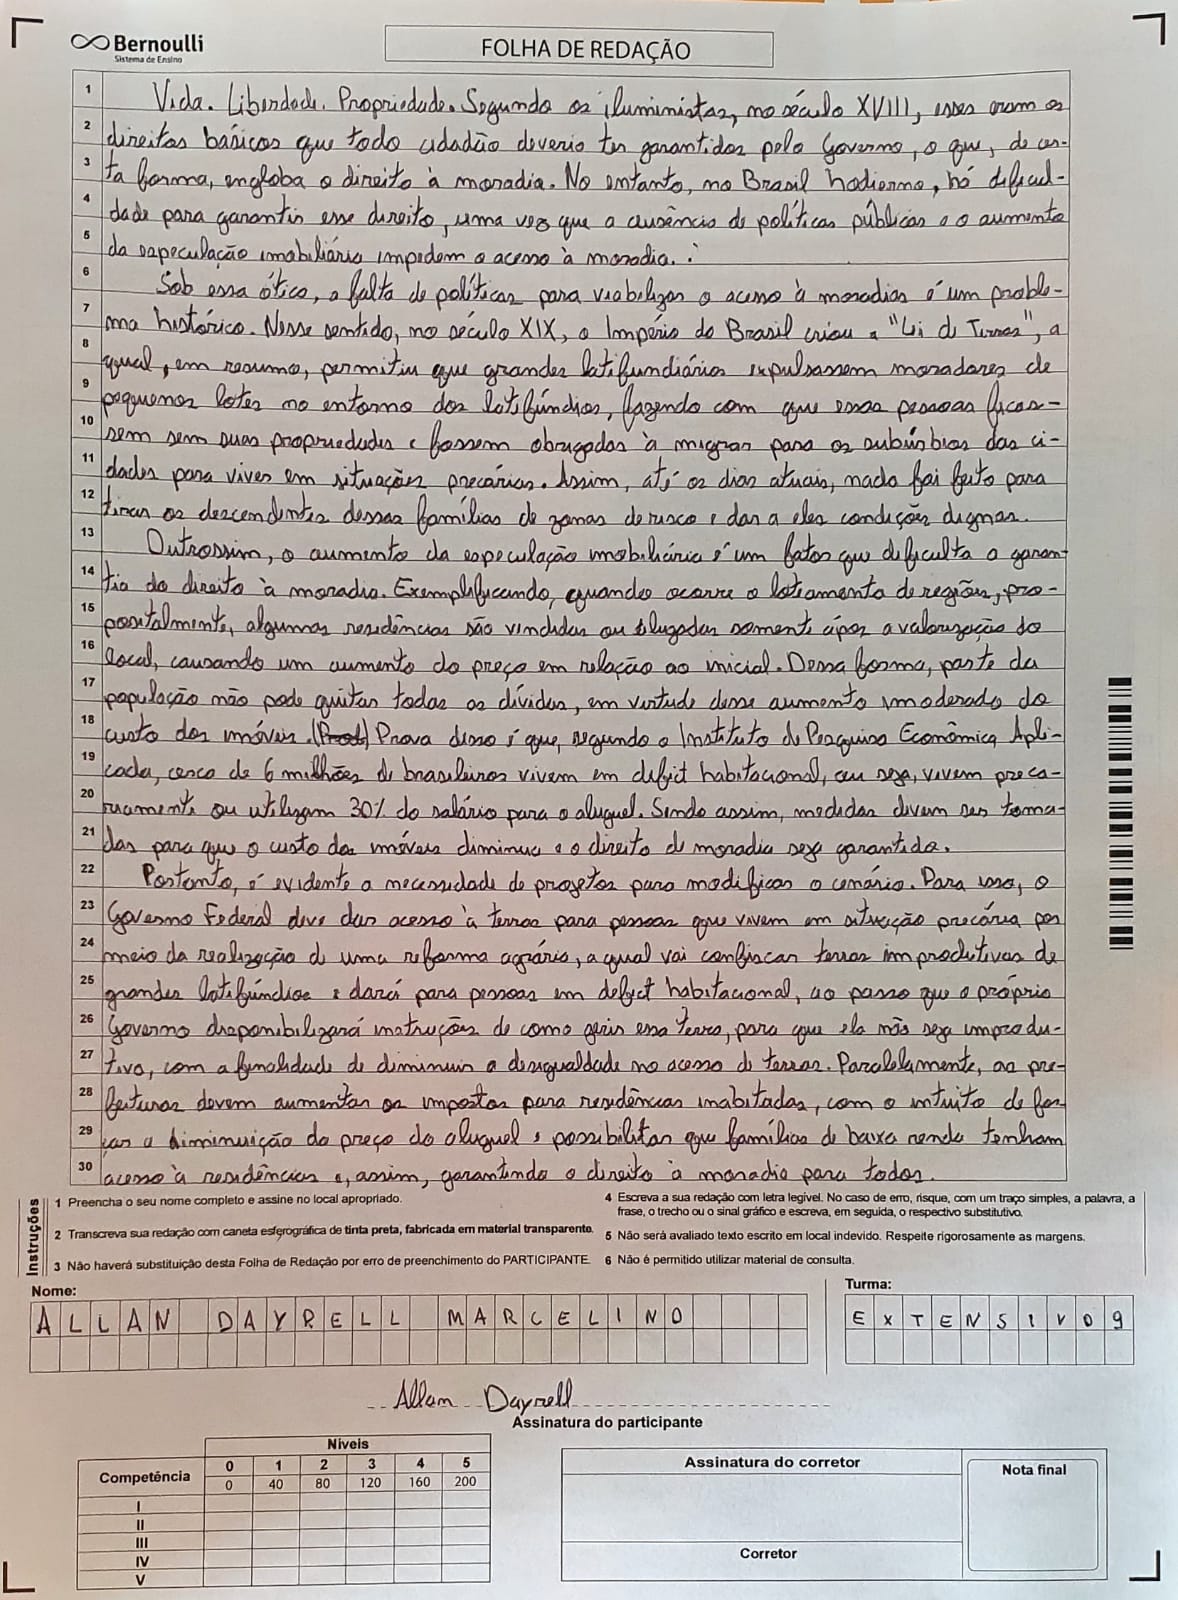 Bernoulli
Sistema de Ensino
FOLHA DE REDAÇÃO
1 Vida. Liberdade. Propriedade. Segundo os iluministas, no século XVIII, esses eram os
2 direitos básicos que todo cidadão deveria ter garantidos pelo Governo, o que, de cer-
3 ta forma, engloba o direito à moradia. No entanto, no Brasil hodierno, há dificul-
4 dade para garantir esse direito, uma vez que a ausência de políticas públicas e o aumento
5 da especulação imobiliária impedem o acesso à moradia.
6 Sob essa ótica, a falta de políticas para viabilizar o acesso à moradias é um proble-
7 ma histórico. Nesse sentido, no século XIX, o Império do Brasil criou a "Lei de Terras", a
8 qual, em resumo, permitiu que grandes latifundiários expulsassem moradores de
9 pequenos lotes no entorno dos latifúndios, fazendo com que essas pessoas ficas-
10 sem sem suas propriedades e fossem obrigadas à migrar para os subúrbios das ci-
11 dades para viver em situações precárias. Assim, até os dias atuais, nada foi feito para
12 tirar os descendentes dessas famílias de zonas de risco e dar a eles condições dignas.
13 Outrossim, o aumento da especulação imobiliária é um fator que dificulta a garan-
14 tia do direito à moradia. Exemplificando, quando ocorre o loteamento de regiões, pro-
15 positalmente, algumas residências são vendidas ou alugadas somente após a valorização do
16 local, causando um aumento do preço em relação ao inicial. Dessa forma, parte da
17 população não pode quitar todas as dívidas, em virtude desse aumento imoderado do
18 custo dos imóveis. Prova disso é que, segundo o Instituto de Pesquisa Econômica Apli-
19 cada, cerca de 6 milhões de brasileiros vivem em deficit habitacional, ou seja, vivem preca-
20 riamente ou utilizam 30% do salário para o aluguel. Sendo assim, medidas devem ser toma-
21 das para que o custo dos imóveis diminua e o direito de moradia seja garantido.
22 Portanto, é evidente a necessidade de projetos para modificar o cenário. Para isso, o
23 Governo Federal deve dar acesso à terras para pessoas que vivem em situação precária por
24 meio da realização de uma reforma agrária, a qual vai confiscar terras improdutivas de
25 grandes latifúndios e dará para pessoas em defict habitacional, ao passo que o próprio
26 Governo disponibilizará instruções de como gerir essa terra, para que ela não seja improdu-
27 tiva, com a finalidade de diminuir a desigualdade no acesso de terras. Paralelamente, as pre-
28 feituras devem aumentar os impostos para residências inabitadas, com o intuito de for-
29 çar a diminuição do preço do aluguel e possibilitar que famílias de baixa renda tenham
30 acesso à residências e, assim, garantindo o direito à moradia para todos.
Instruções
1 Preencha o seu nome completo e assine no local apropriado.
2 Transcreva sua redação com caneta esferográfica de tinta preta, fabricada em material transparente.
3 Não haverá substituição desta Folha de Redação por erro de preenchimento do PARTICIPANTE.
4 Escreva a sua redação com letra legível. No caso de erro, risque, com um traço simples, a palavra, a
frase, o trecho ou o sinal gráfico e escreva, em seguida, o respectivo substitutivo.
5 Não será avaliado texto escrito em local indevido. Respeite rigorosamente as margens.
6 Não é permitido utilizar material de consulta.
Nome:
ALLAN DAYRELL MARCELINO
Turma:
EXTENSIVO9
Allan Dayrell
Assinatura do participante
Competência
Níveis
0 1 2 3 4 5
0 40 80 120 160 200
I
II
III
IV
V
Assinatura do corretor
Corretor
Nota final